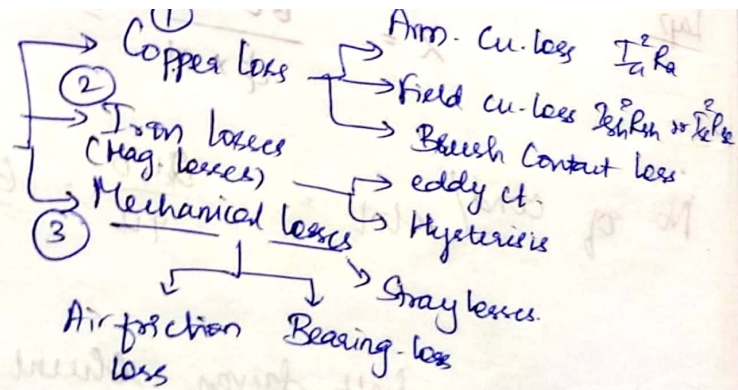 ①
Copper loss
Arm. Cu. loss Ia²Ra
Field cu. loss Ish²Rsh or Ise²Rse
Brush Contact loss
②
Iron losses
(Mag. losses)
eddy ct.
Hysterisis
③
Mechanical losses
Stray losses.
Air friction
loss
Bearing. loss